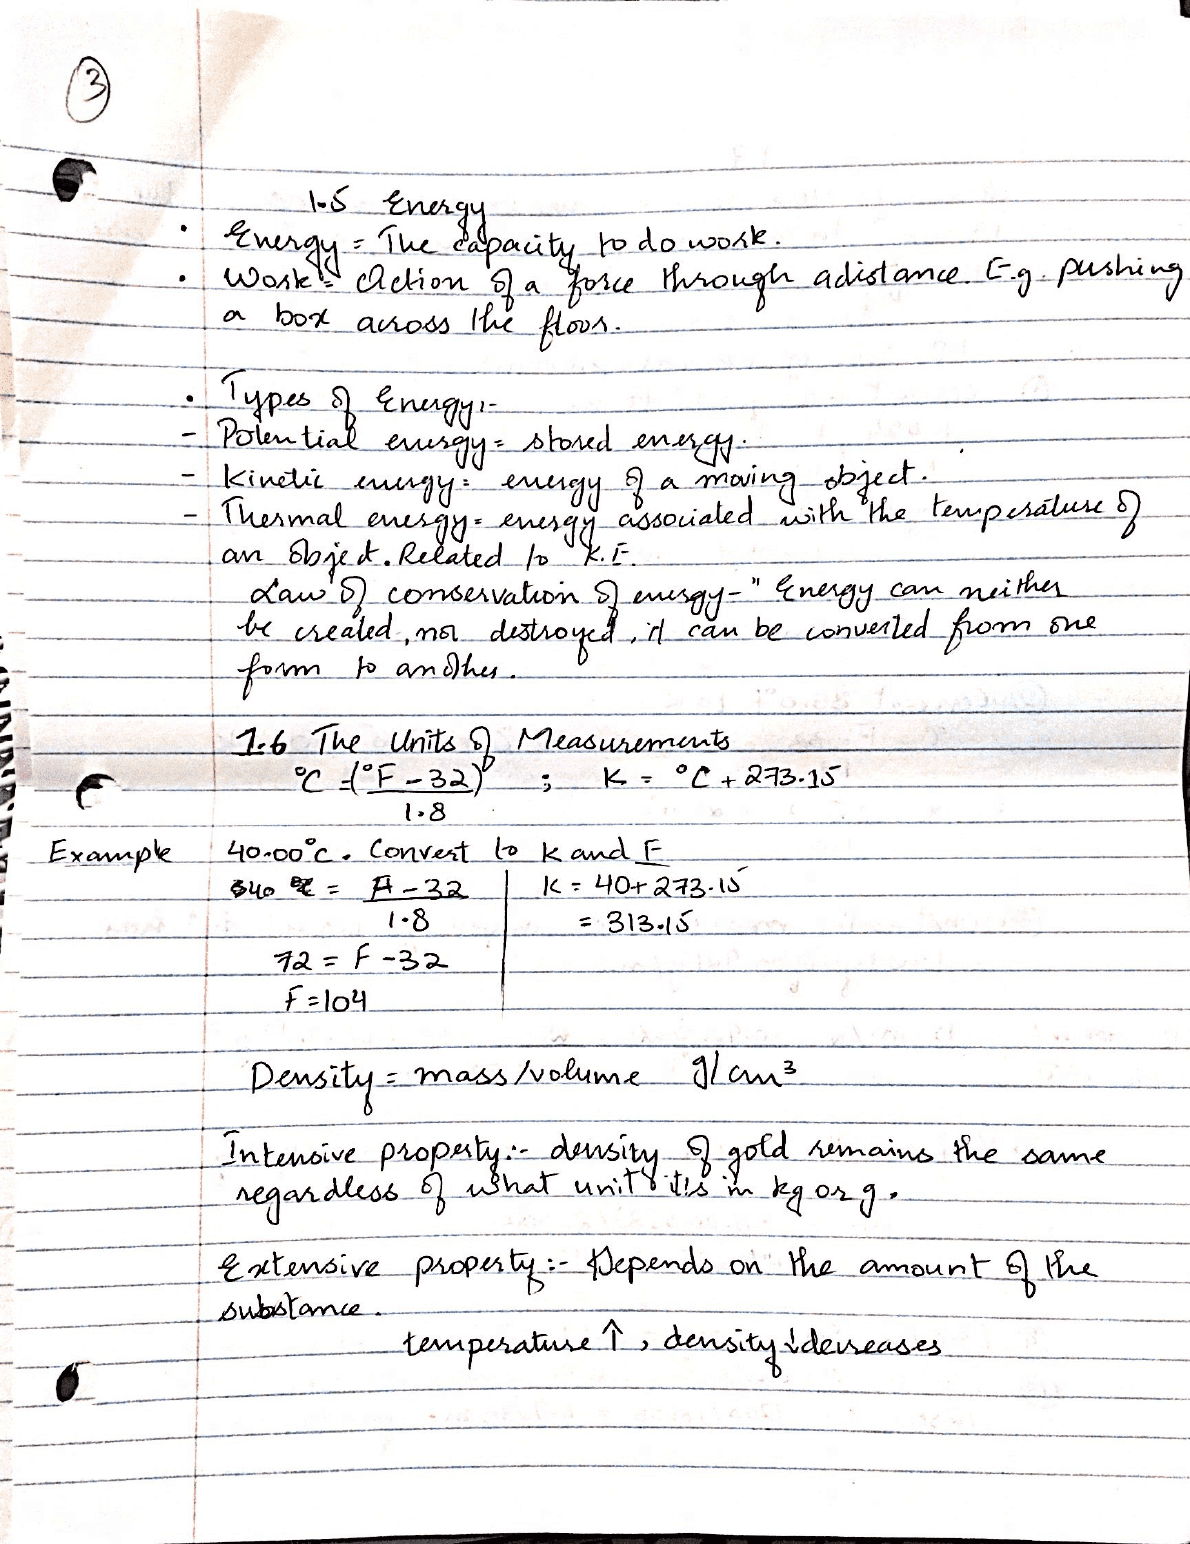 3
1.5 Energy
• Energy = The capacity to do work.
• Work = Action of a force through a distance. E.g. pushing
a box across the floor.
• Types of Energy:-
- Potential energy = stored energy.
- Kinetic energy = energy of a moving object.
- Thermal energy = energy associated with the temperature of
an object. Related to K.E.
Law of conservation of energy - " Energy can neither
be created, nor destroyed, it can be converted from one
form to another.
1.6 The Units of Measurements
°C = (°F - 32) / 1.8 ; K = °C + 273.15
Example 40.00°C. Convert to K and F
40 = F - 32 K = 40 + 273.15
1.8 = 313.15
72 = F - 32
F = 104
Density = mass/volume g/cm³
Intensive property:- density of gold remains the same
regardless of what unit it's in kg or g.
Extensive property:- Depends on the amount of the
substance.
temperature ↑, density ↓ decreases